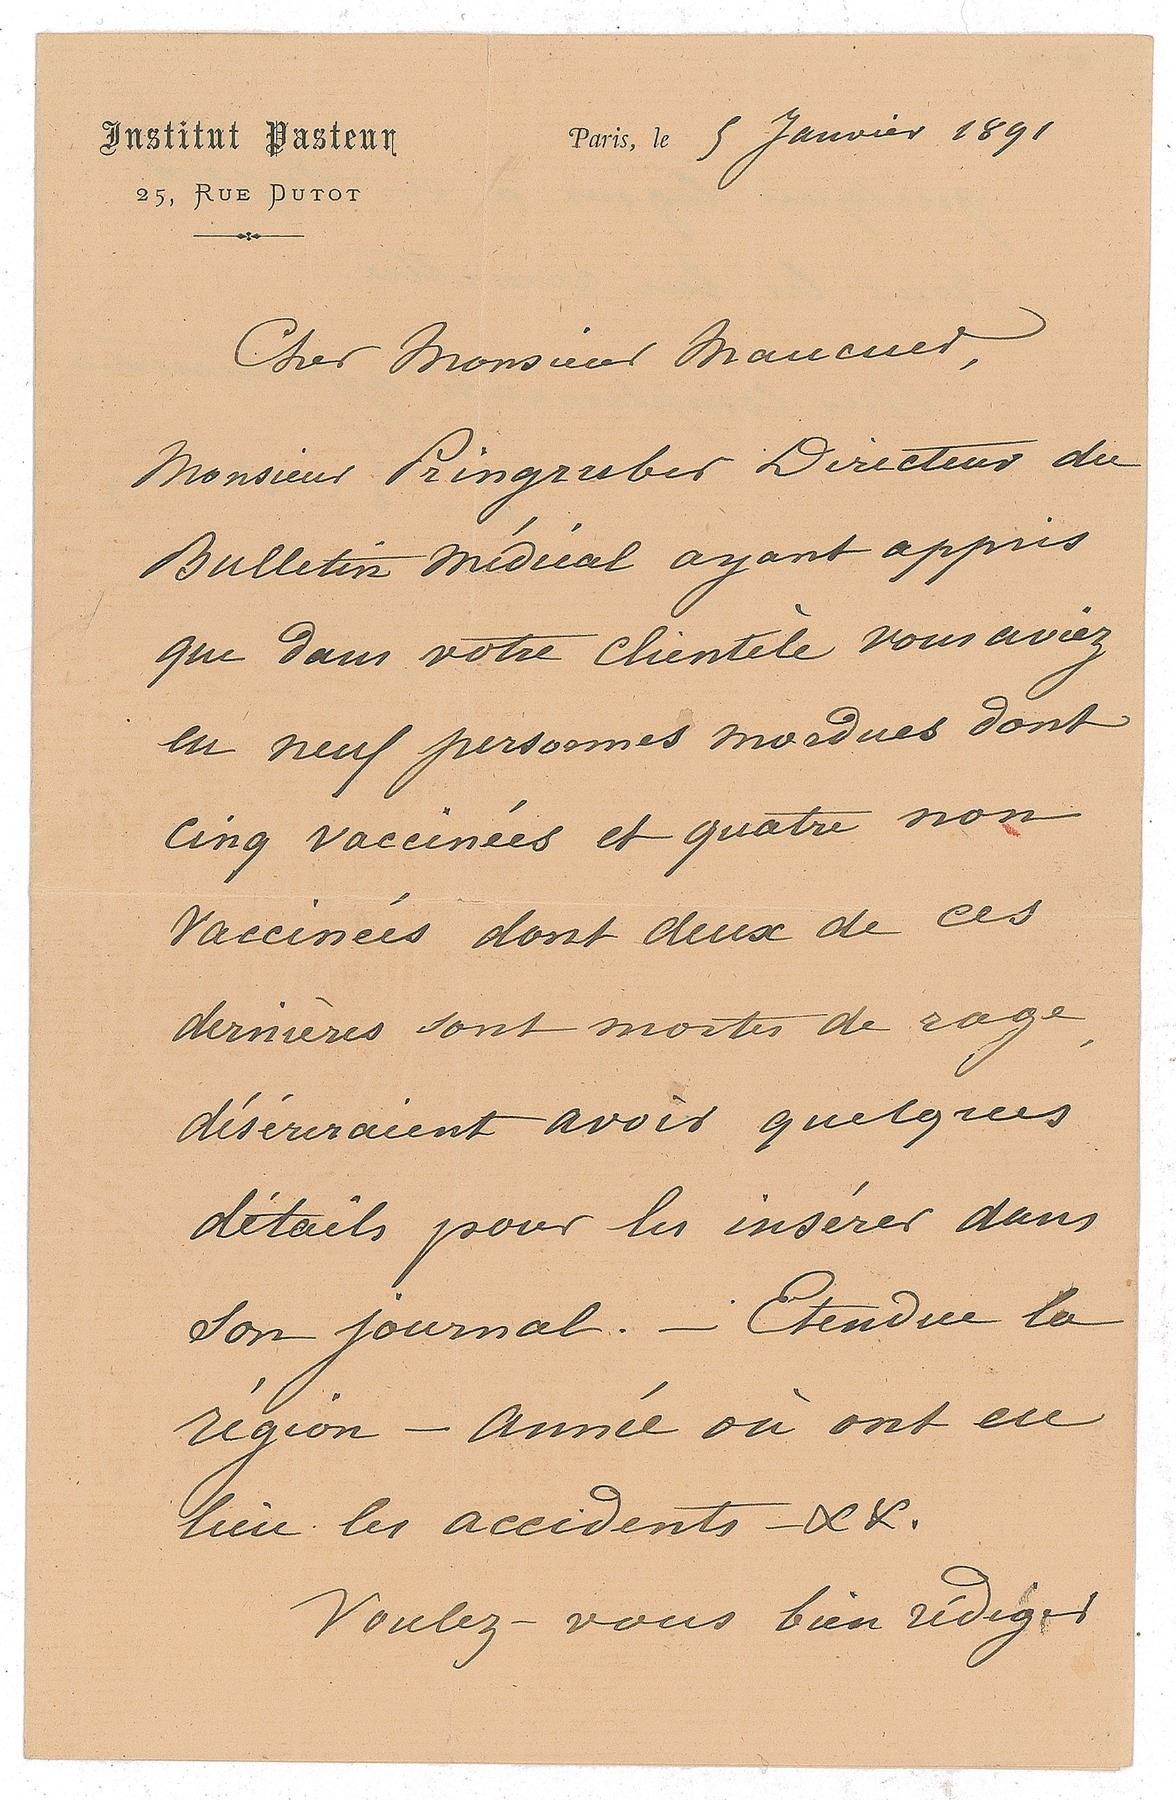 Institut Pasteur
25, Rue Dutot
Paris, le 5 Janvier 1891
Cher Monsieur Maucuer,
Monsieur Pringruber Directeur du
Bulletin Médical ayant appris
que dans votre clientèle vous aviez
eu neuf personnes mordues dont
cinq vaccinées et quatre non
vaccinées dont deux de ces
dernières sont mortes de rage,
déséreraient avoir quelques
détails pour les insérer dans
son journal. — Etendue la
région — Année où ont eu
lieu les accidents — &&.
Voulez-vous bien rédiger